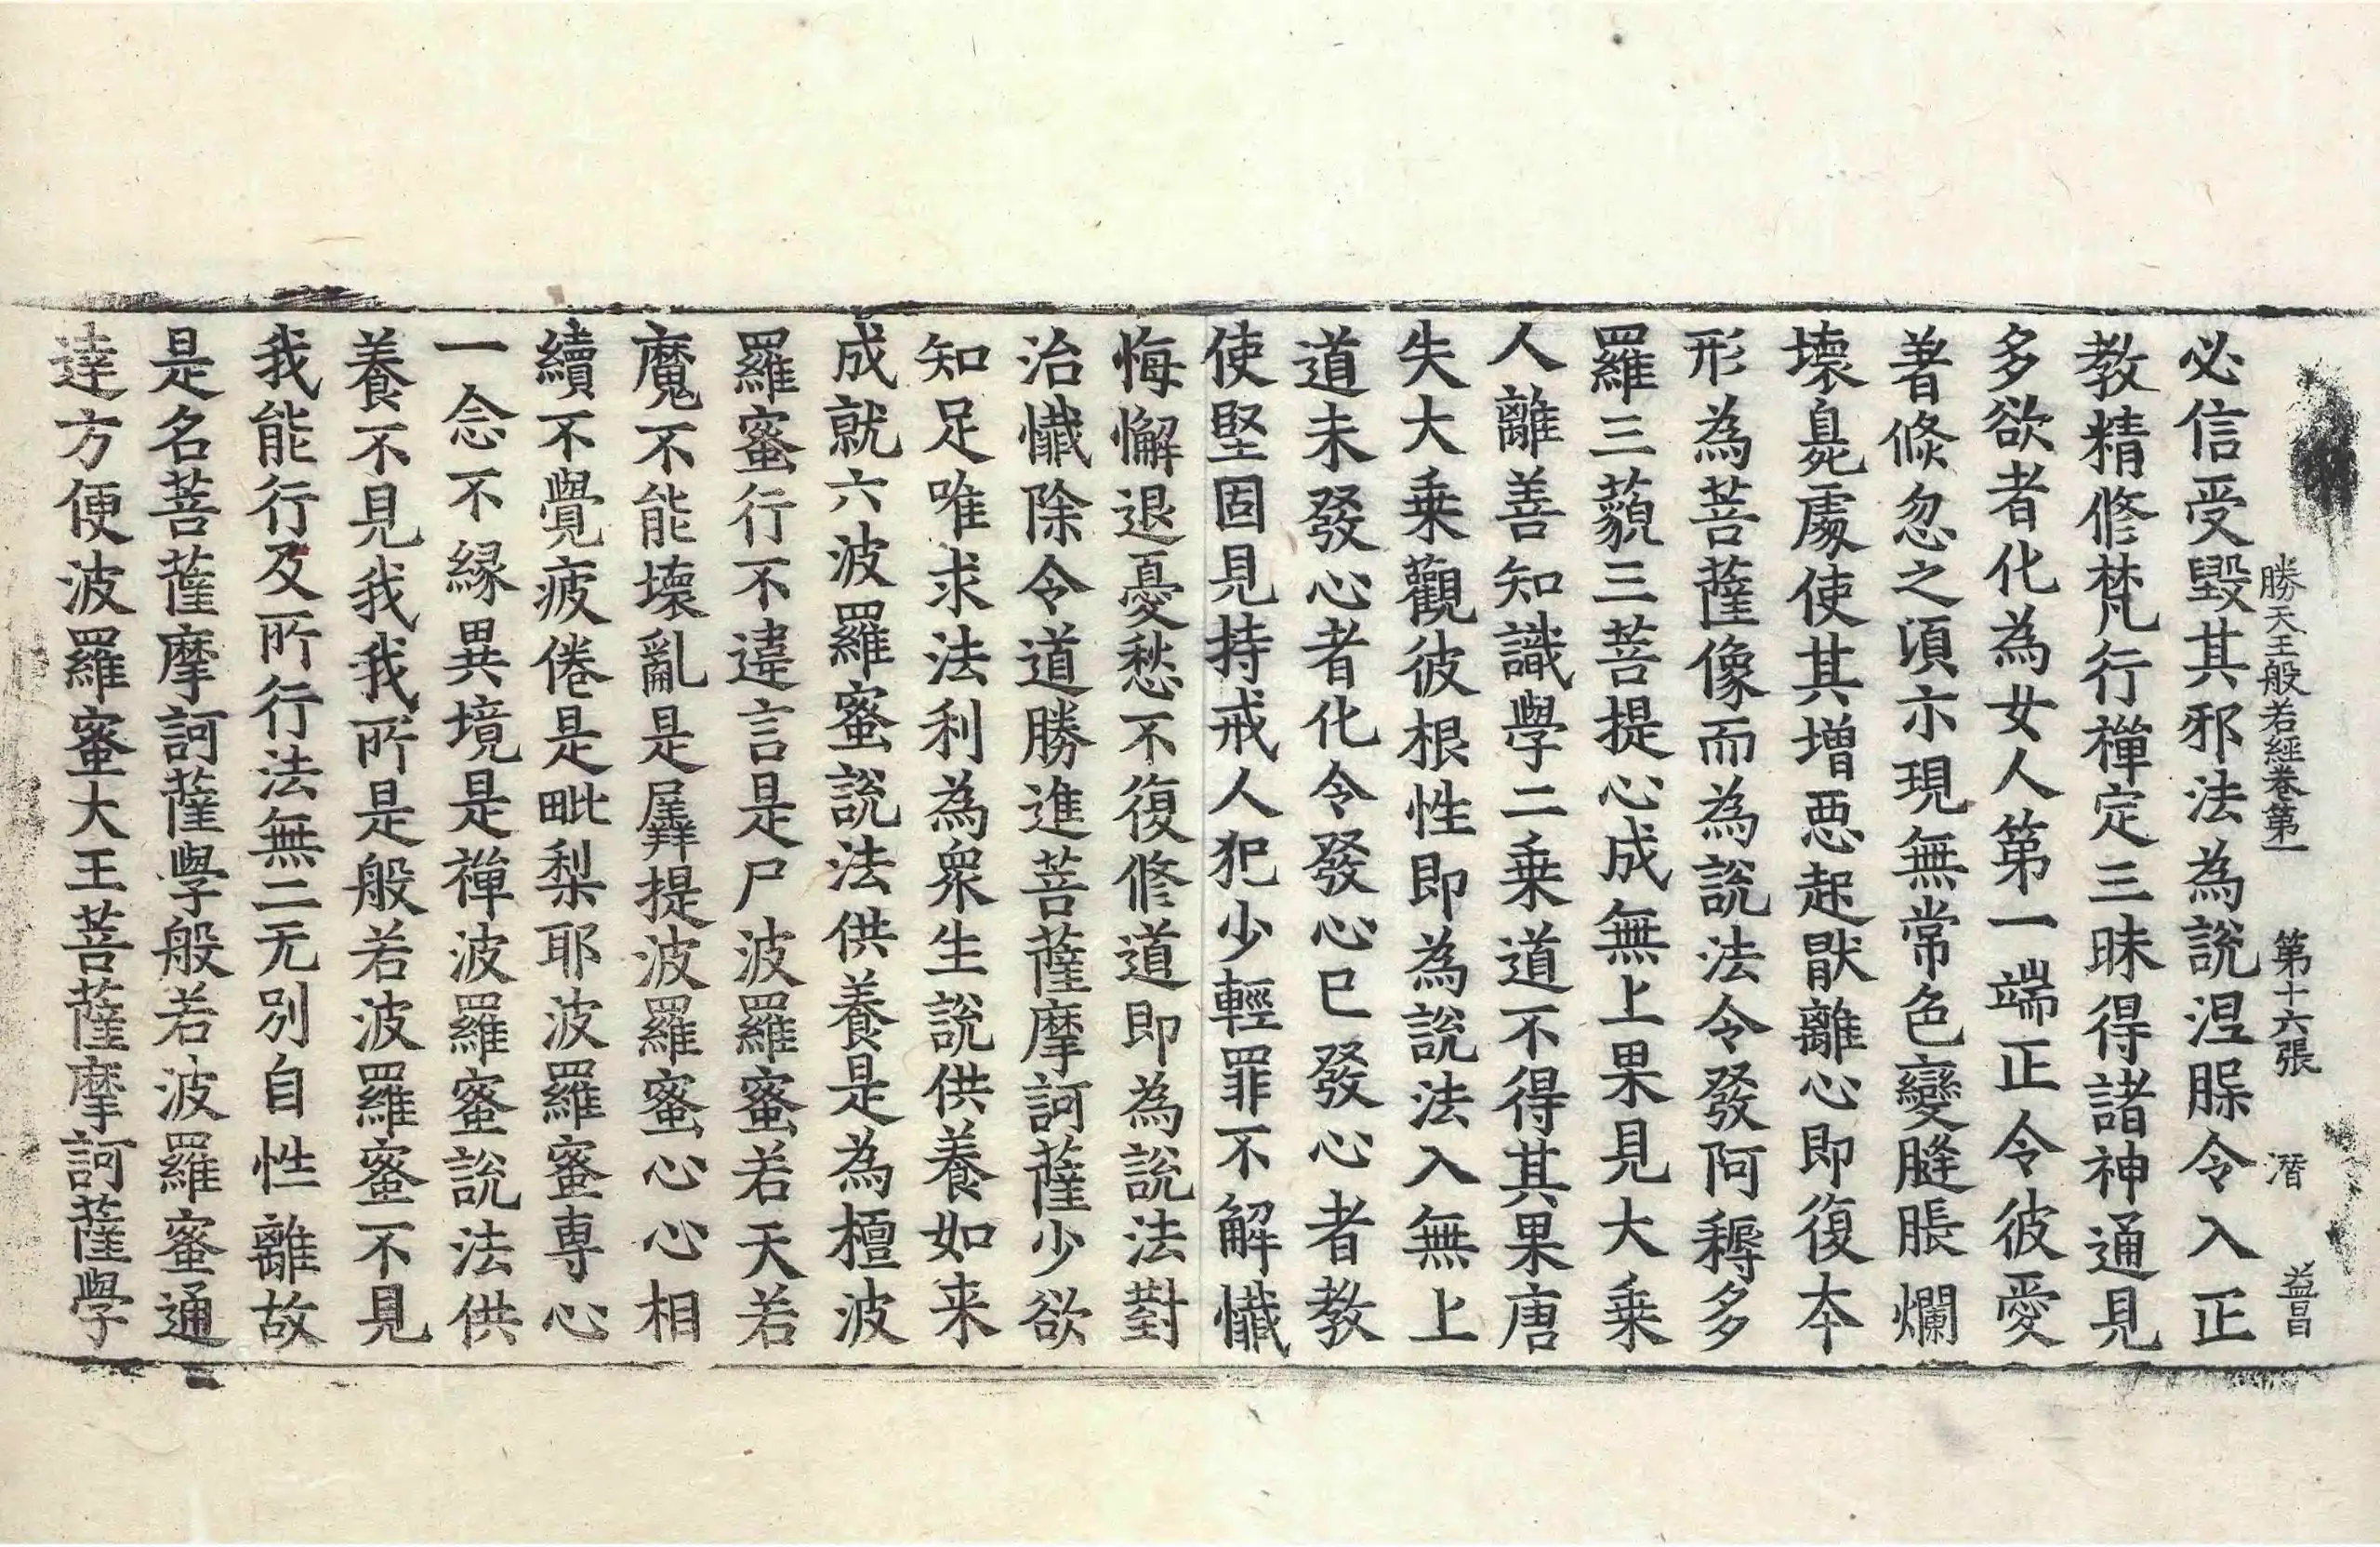 勝天王般若經卷第一　第十六張　潛　益昌
必信受毀其邪法為說涅槃令入正
教精修梵行禪定三昧得諸神通見
多欲者化為女人第一端正令彼愛
著倏忽之須亦現無常色變膖脹爛
壞臰處使其增惡起猒離心即復本
形為菩薩像而為說法令發阿耨多
羅三藐三菩提心成無上果見大乗
人離善知識學二乗道不得其果唐
失大乗觀彼根性即為說法入無上
道未發心者化令發心已發心者教
使堅固見持戒人犯少輕罪不解懺
悔懈退憂愁不復修道即為說法對
治懺除令道勝進菩薩摩訶薩少欲
知足唯求法利為衆生說供養如来
成就六波羅蜜說法供養是為檀波
羅蜜行不違言是尸波羅蜜若天若
魔不能壞亂是羼提波羅蜜心心相
續不覺疲倦是毗梨耶波羅蜜専心
一念不縁異境是禪波羅蜜說法供
養不見我我所是般若波羅蜜不見
我能行及所行法無二无別自性離故
是名菩薩摩訶薩學般若波羅蜜通
達方便波羅蜜大王菩薩摩訶薩學